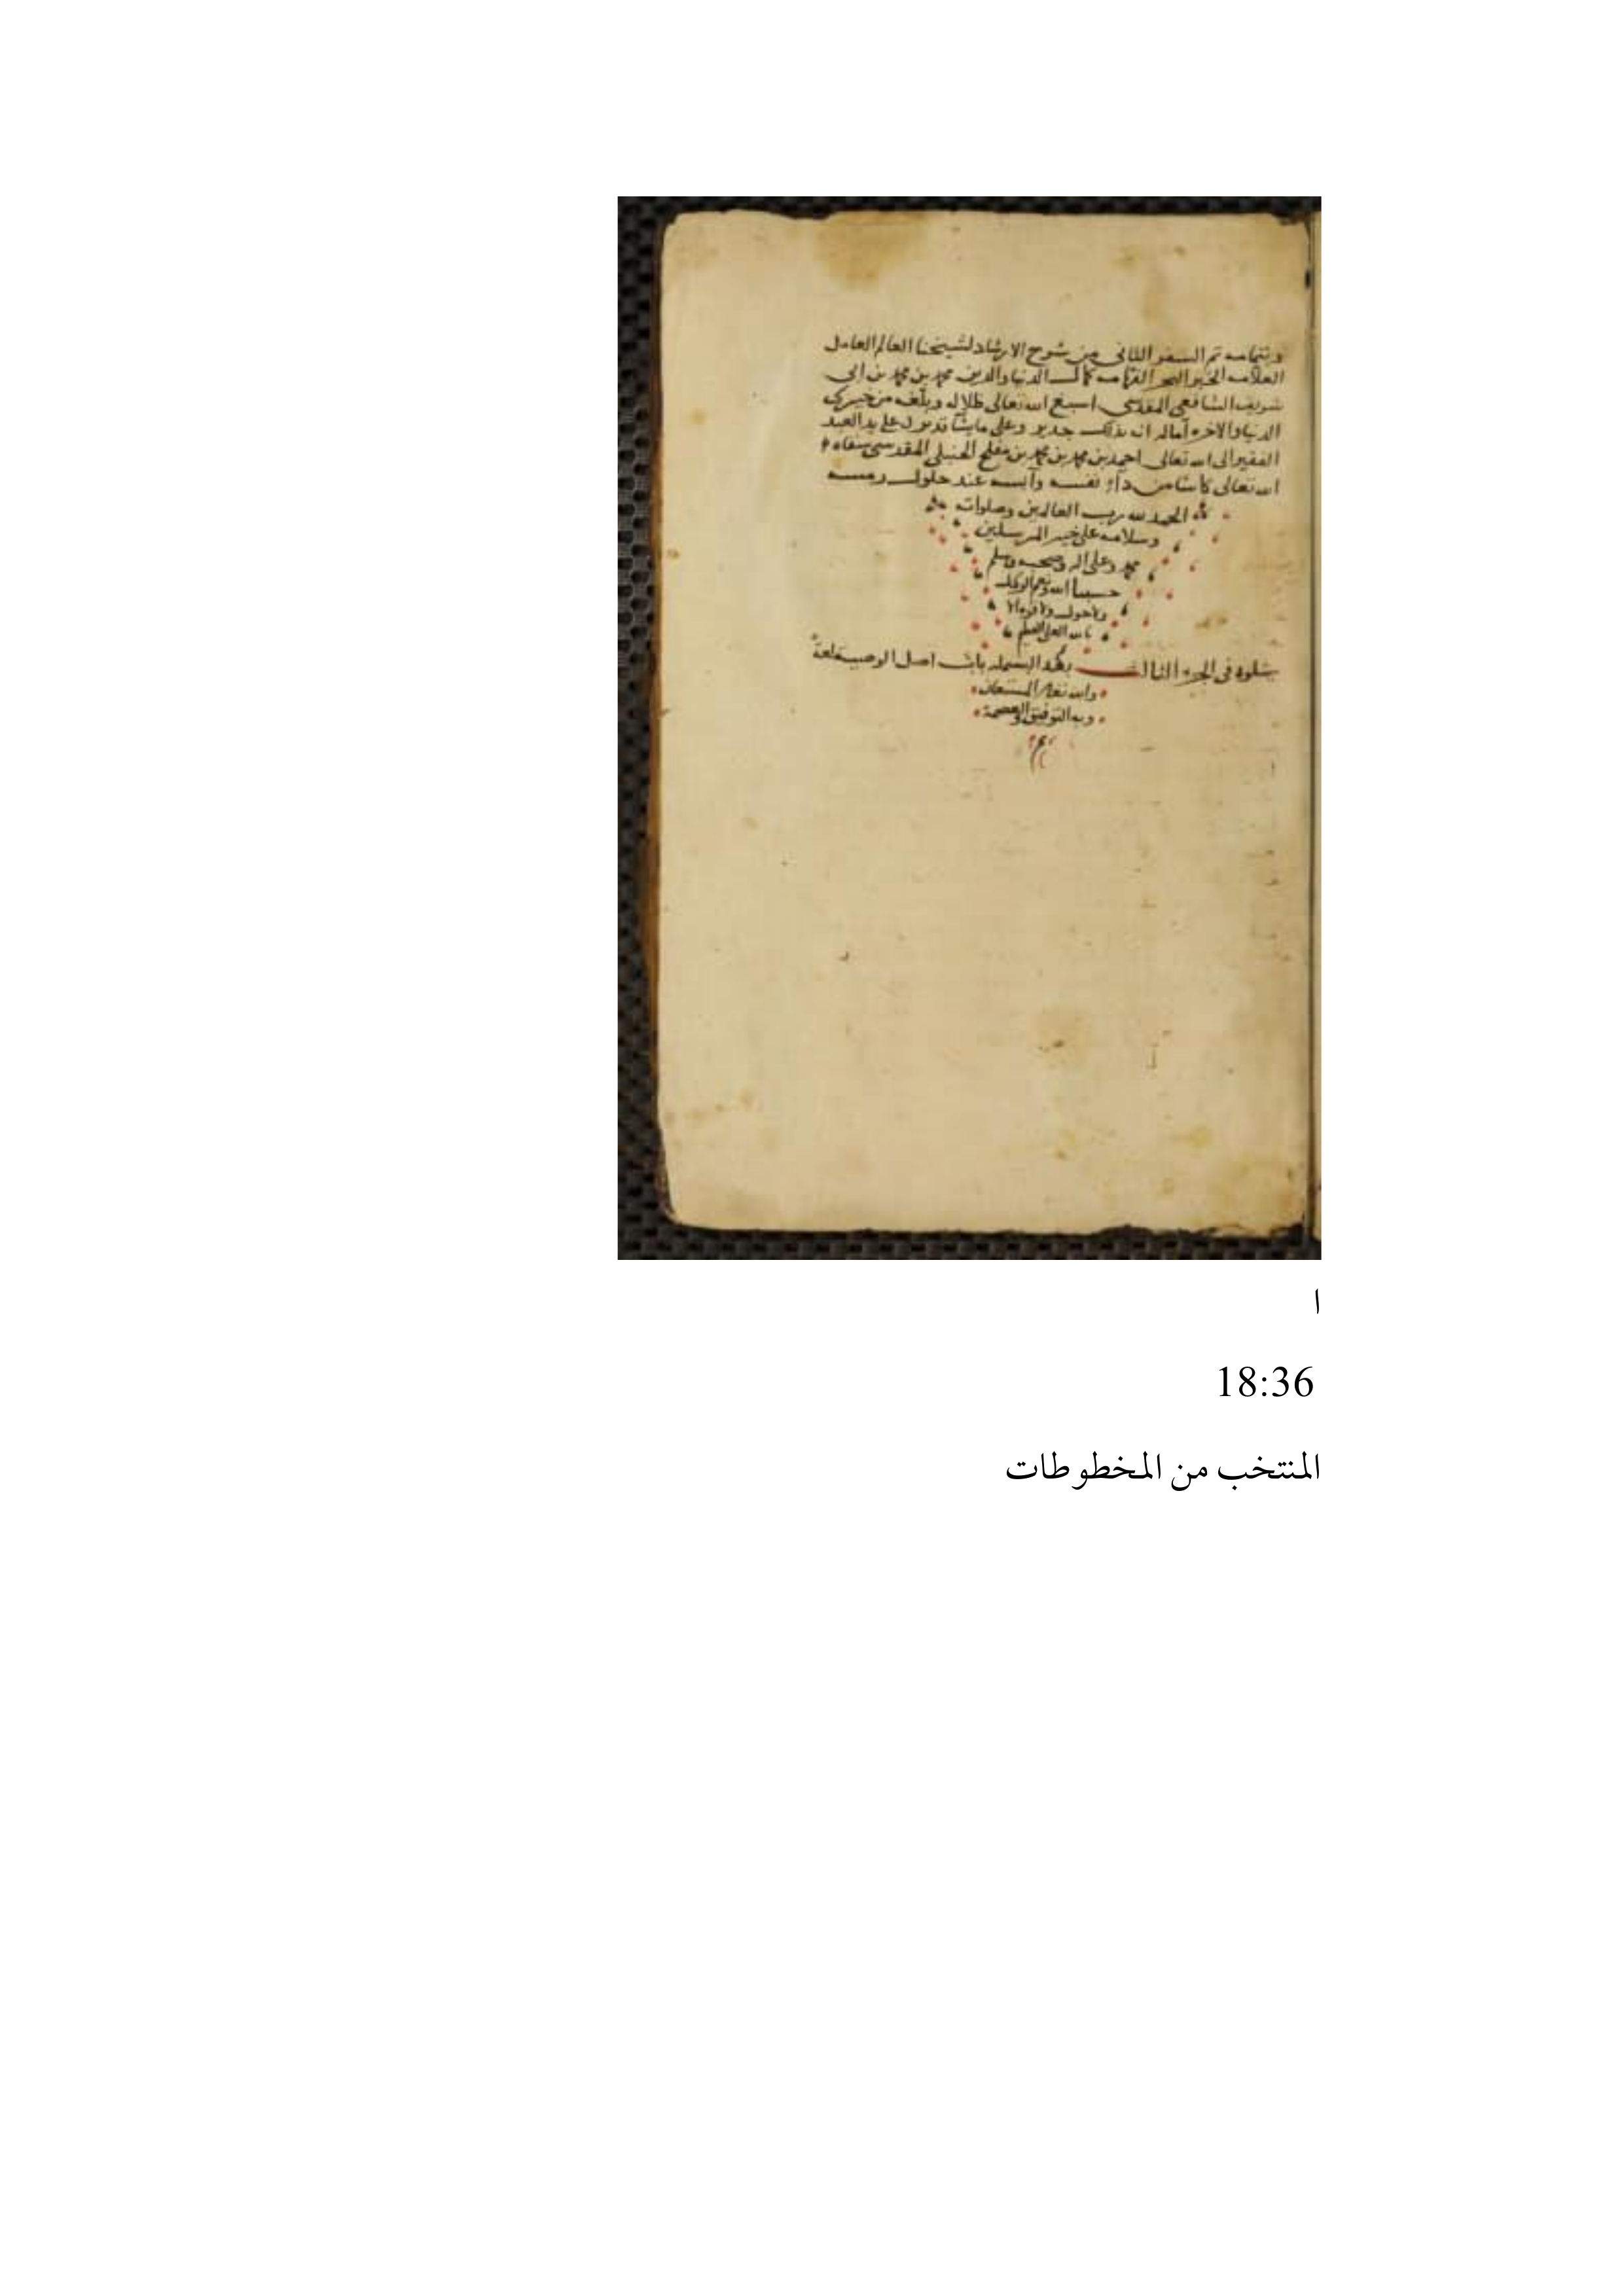 وبتمامه تم السفر الثانى من شرح الارشاد لشيخنا العالم العامل
العلامه الحبر البحر الفهامه كمال الدنيا والدين محمد بن محمد بن ابى
شريف الشافعى المقدسى اسبغ الله تعالى ظلاله وبلغه من خيرى
الدنيا والاخره آماله انه بذلك جدير وعلى ما يشا قدير على يد العبد
الفقير الى الله تعالى احمد بن محمد بن محمد بن مفلح الحنبلى المقدسى سقاه
الله تعالى كاسا من دا نفسه وآنسه عند حلول رمسه
الحمد لله رب العالمين وصلوات
وسلامه على خير المرسلين
محمد وعلى اله وصحبه وسلم
حسبنا الله ونعم الوكيل
ولا حول ولا قوه الا
بالله العلى العظيم
يتلوه فى الجزء الثالث بعد البسمله باب اصل الوصية لغة
والله تعالى المستعان
وبه التوفيق والعصمة
ا
18:36
المنتخب من المخطوطات